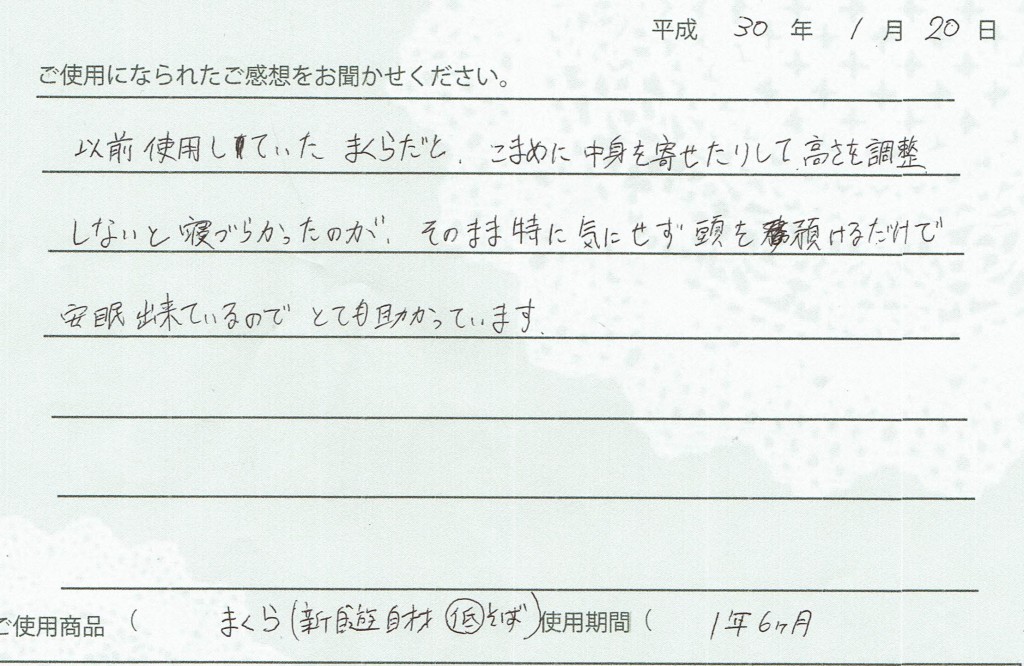 平成 30 年 1 月 20 日
ご使用になられたご感想をお聞かせください。
以前使用していたまくらだと、こまめに中身を寄せたりして高さを調整
しないと寝づらかったのが、そのまま特に気にせず頭を預けるだけで
安眠出来ているのでとても助かっています。
ご使用商品 ( まくら(新 自材 低 そば) 使用期間 ( 1年6ヶ月